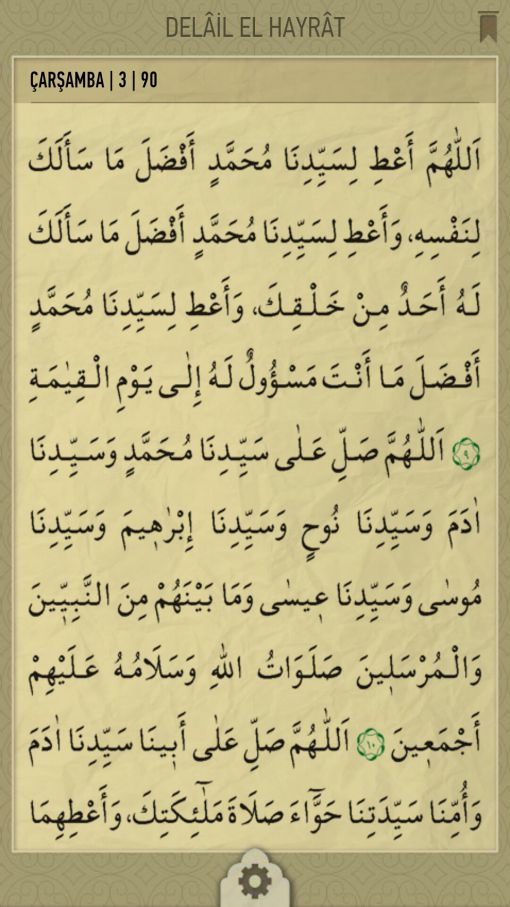 DELÂİL EL HAYRÂT
ÇARŞAMBA | 3 | 90
اَللّٰهُمَّ أَعْطِ لِسَيِّدِنَا مُحَمَّدٍ أَفْضَلَ مَا سَأَلَكَ
لِنَفْسِهِ، وَأَعْطِ لِسَيِّدِنَا مُحَمَّدٍ أَفْضَلَ مَا سَأَلَكَ
لَهُ أَحَدٌ مِنْ خَلْقِكَ، وَأَعْطِ لِسَيِّدِنَا مُحَمَّدٍ
أَفْضَلَ مَا أَنْتَ مَسْؤُولٌ لَهُ إِلٰى يَوْمِ الْقِيٰمَةِ
٩ اَللّٰهُمَّ صَلِّ عَلٰى سَيِّدِنَا مُحَمَّدٍ وَسَيِّدِنَا
اٰدَمَ وَسَيِّدِنَا نُوحٍ وَسَيِّدِنَا إِبْرٰهٖيمَ وَسَيِّدِنَا
مُوسٰى وَسَيِّدِنَا عٖيسٰى وَمَا بَيْنَهُمْ مِنَ النَّبِيّٖينَ
وَالْمُرْسَلٖينَ صَلَوَاتُ اللهِ وَسَلَامُهُ عَلَيْهِمْ
أَجْمَعٖينَ ١٠ اَللّٰهُمَّ صَلِّ عَلٰى أَبٖينَا سَيِّدِنَا اٰدَمَ
وَأُمِّنَا سَيِّدَتِنَا حَوَّٓاءَ صَلَاةَ مَلٰٓئِكَتِكَ، وَأَعْطِهِمَا